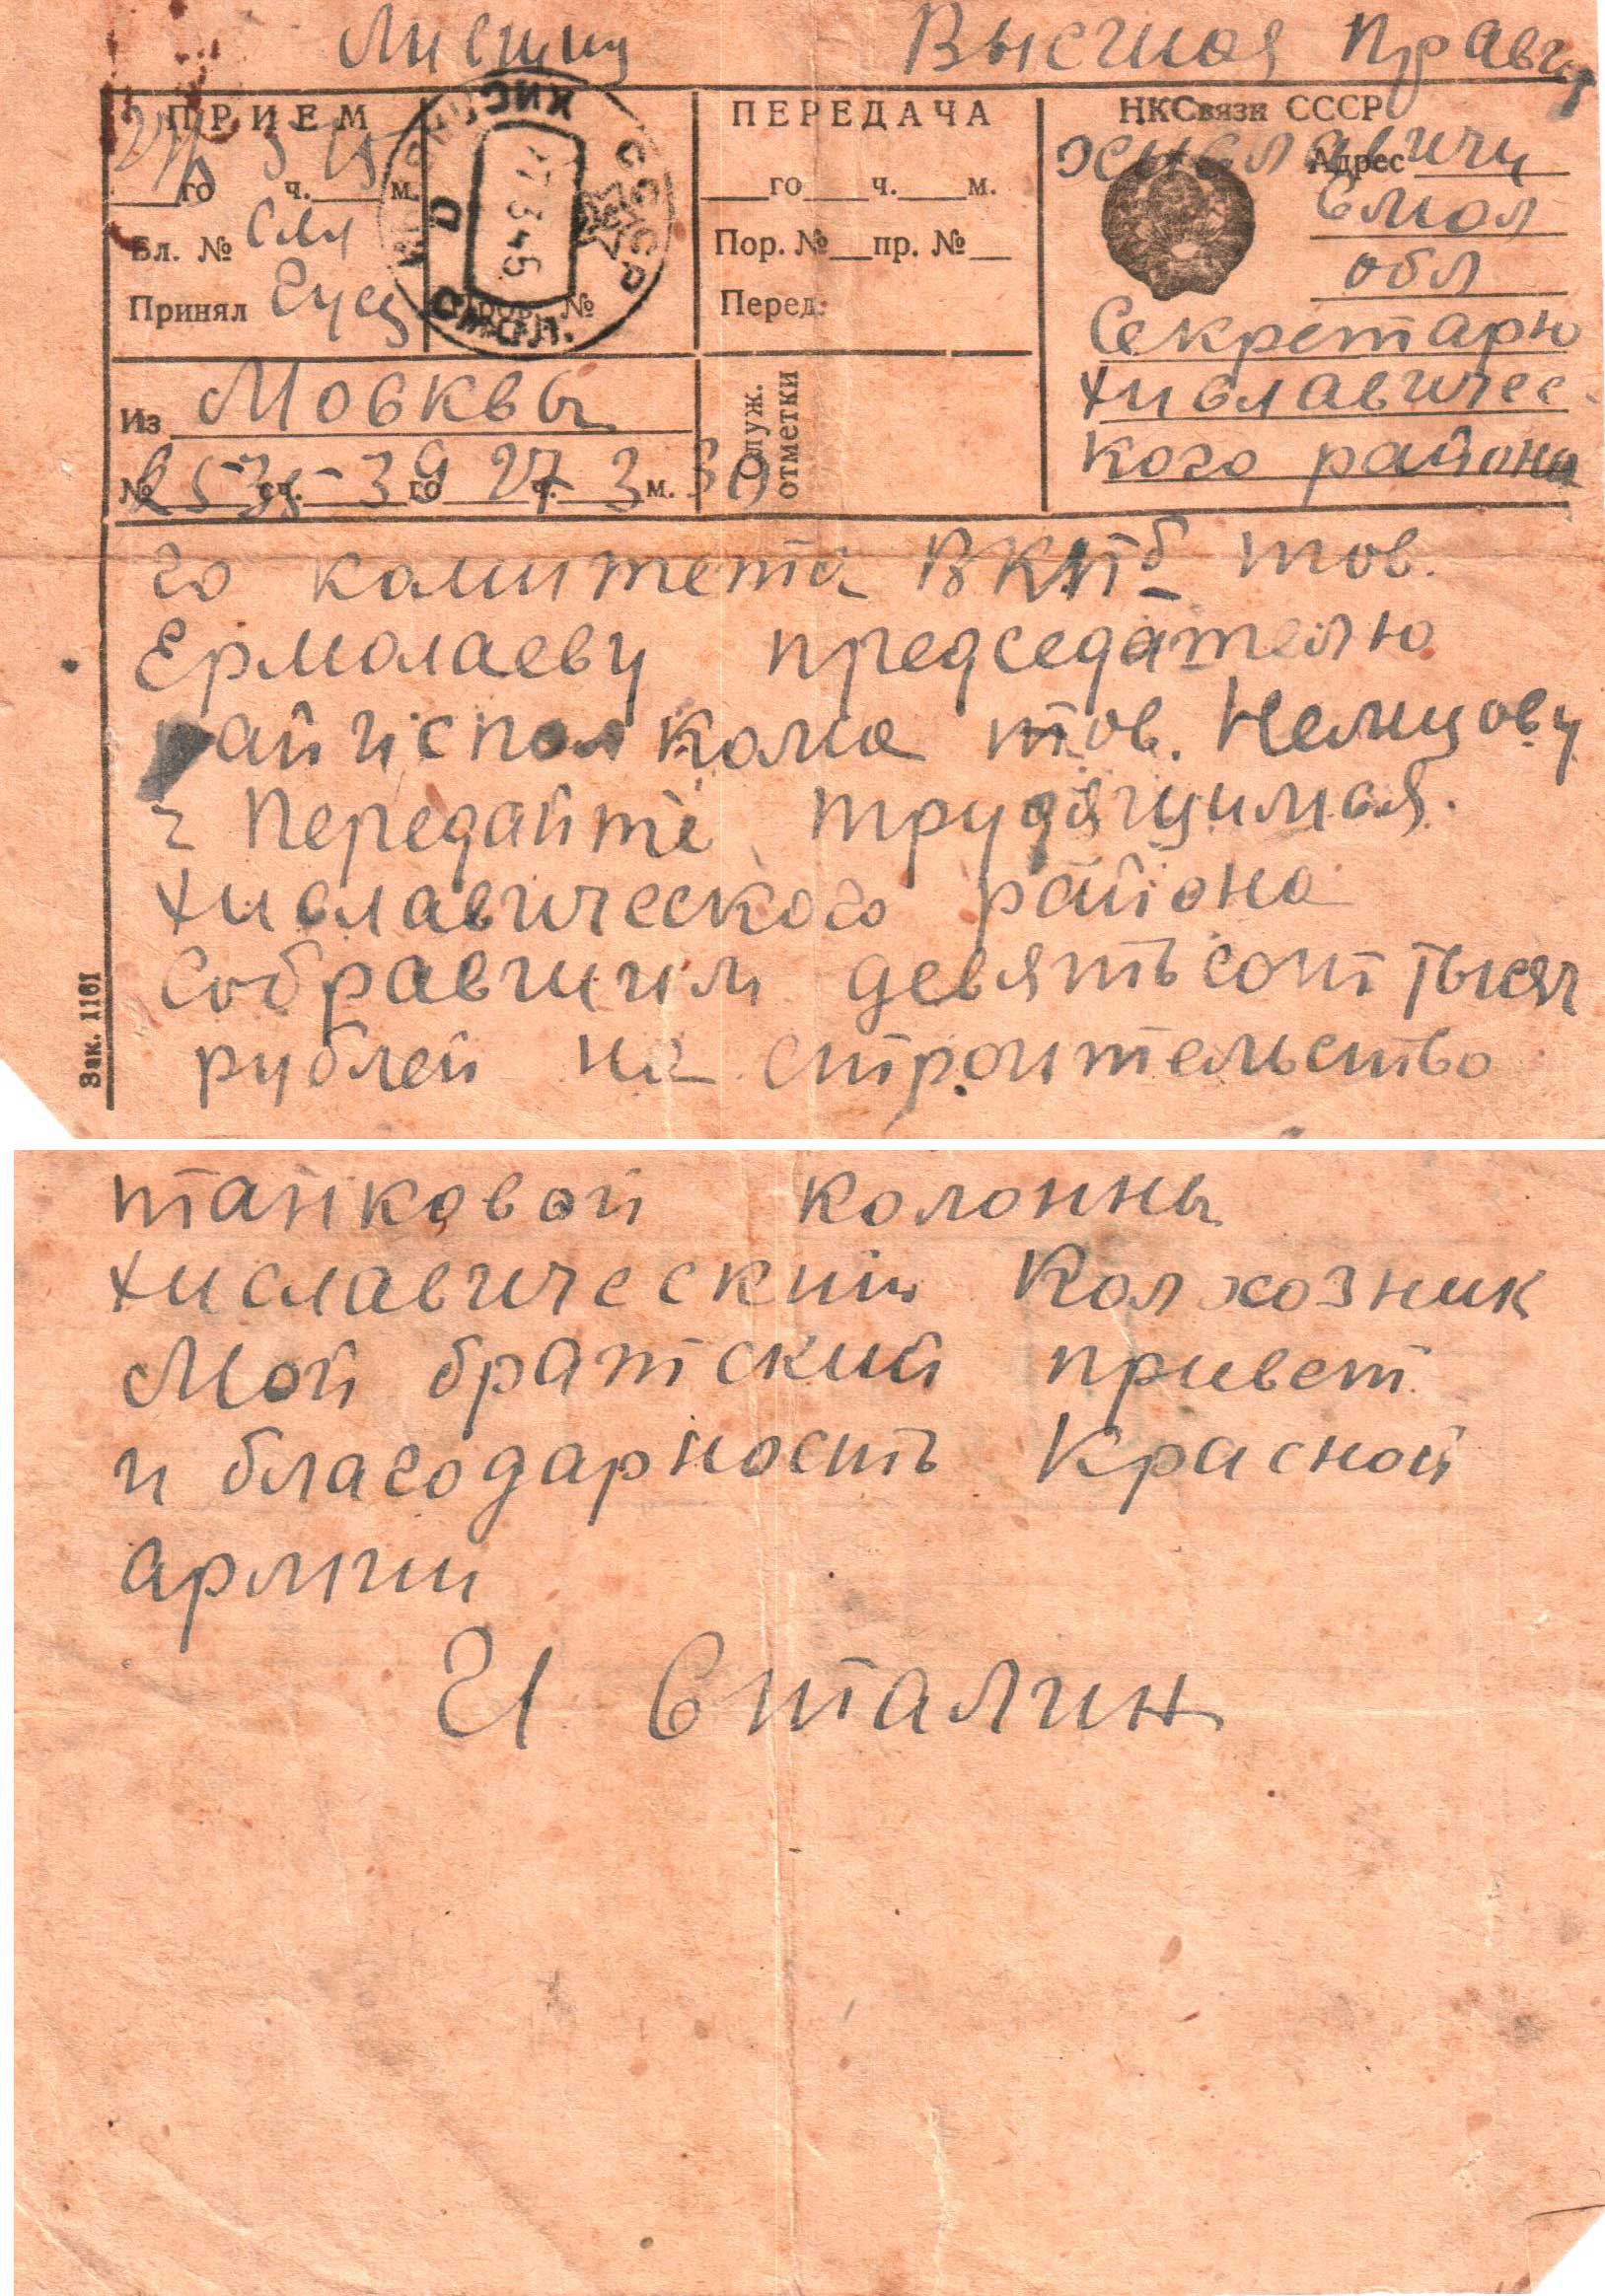 Высшая Правит
ПРИЕМ
го ч. м.
Бл. №
Принял
ХИСЛАВИЧИ СМОЛ. СССР
ПЕРЕДАЧА
го ч. м.
Пор. № пр. №
Перед.
НКСвязи СССР
хиславичи
Адрес
Смол
обл
Секретарю
хиславичес
кого района
Из Москвы
№ сч. го ч. м.
Служ.
отметки
го комитета ВКПб тов.
Ермолаеву председателю
райисполкома тов. Немцову
Передайте трудящимся
хиславического района
собравшим девятьсот тысяч
рублей на строительство
Зак. 1161
танковой колонны
хиславический Колхозник
Мой братский привет
и благодарность Красной
армии
И Сталин